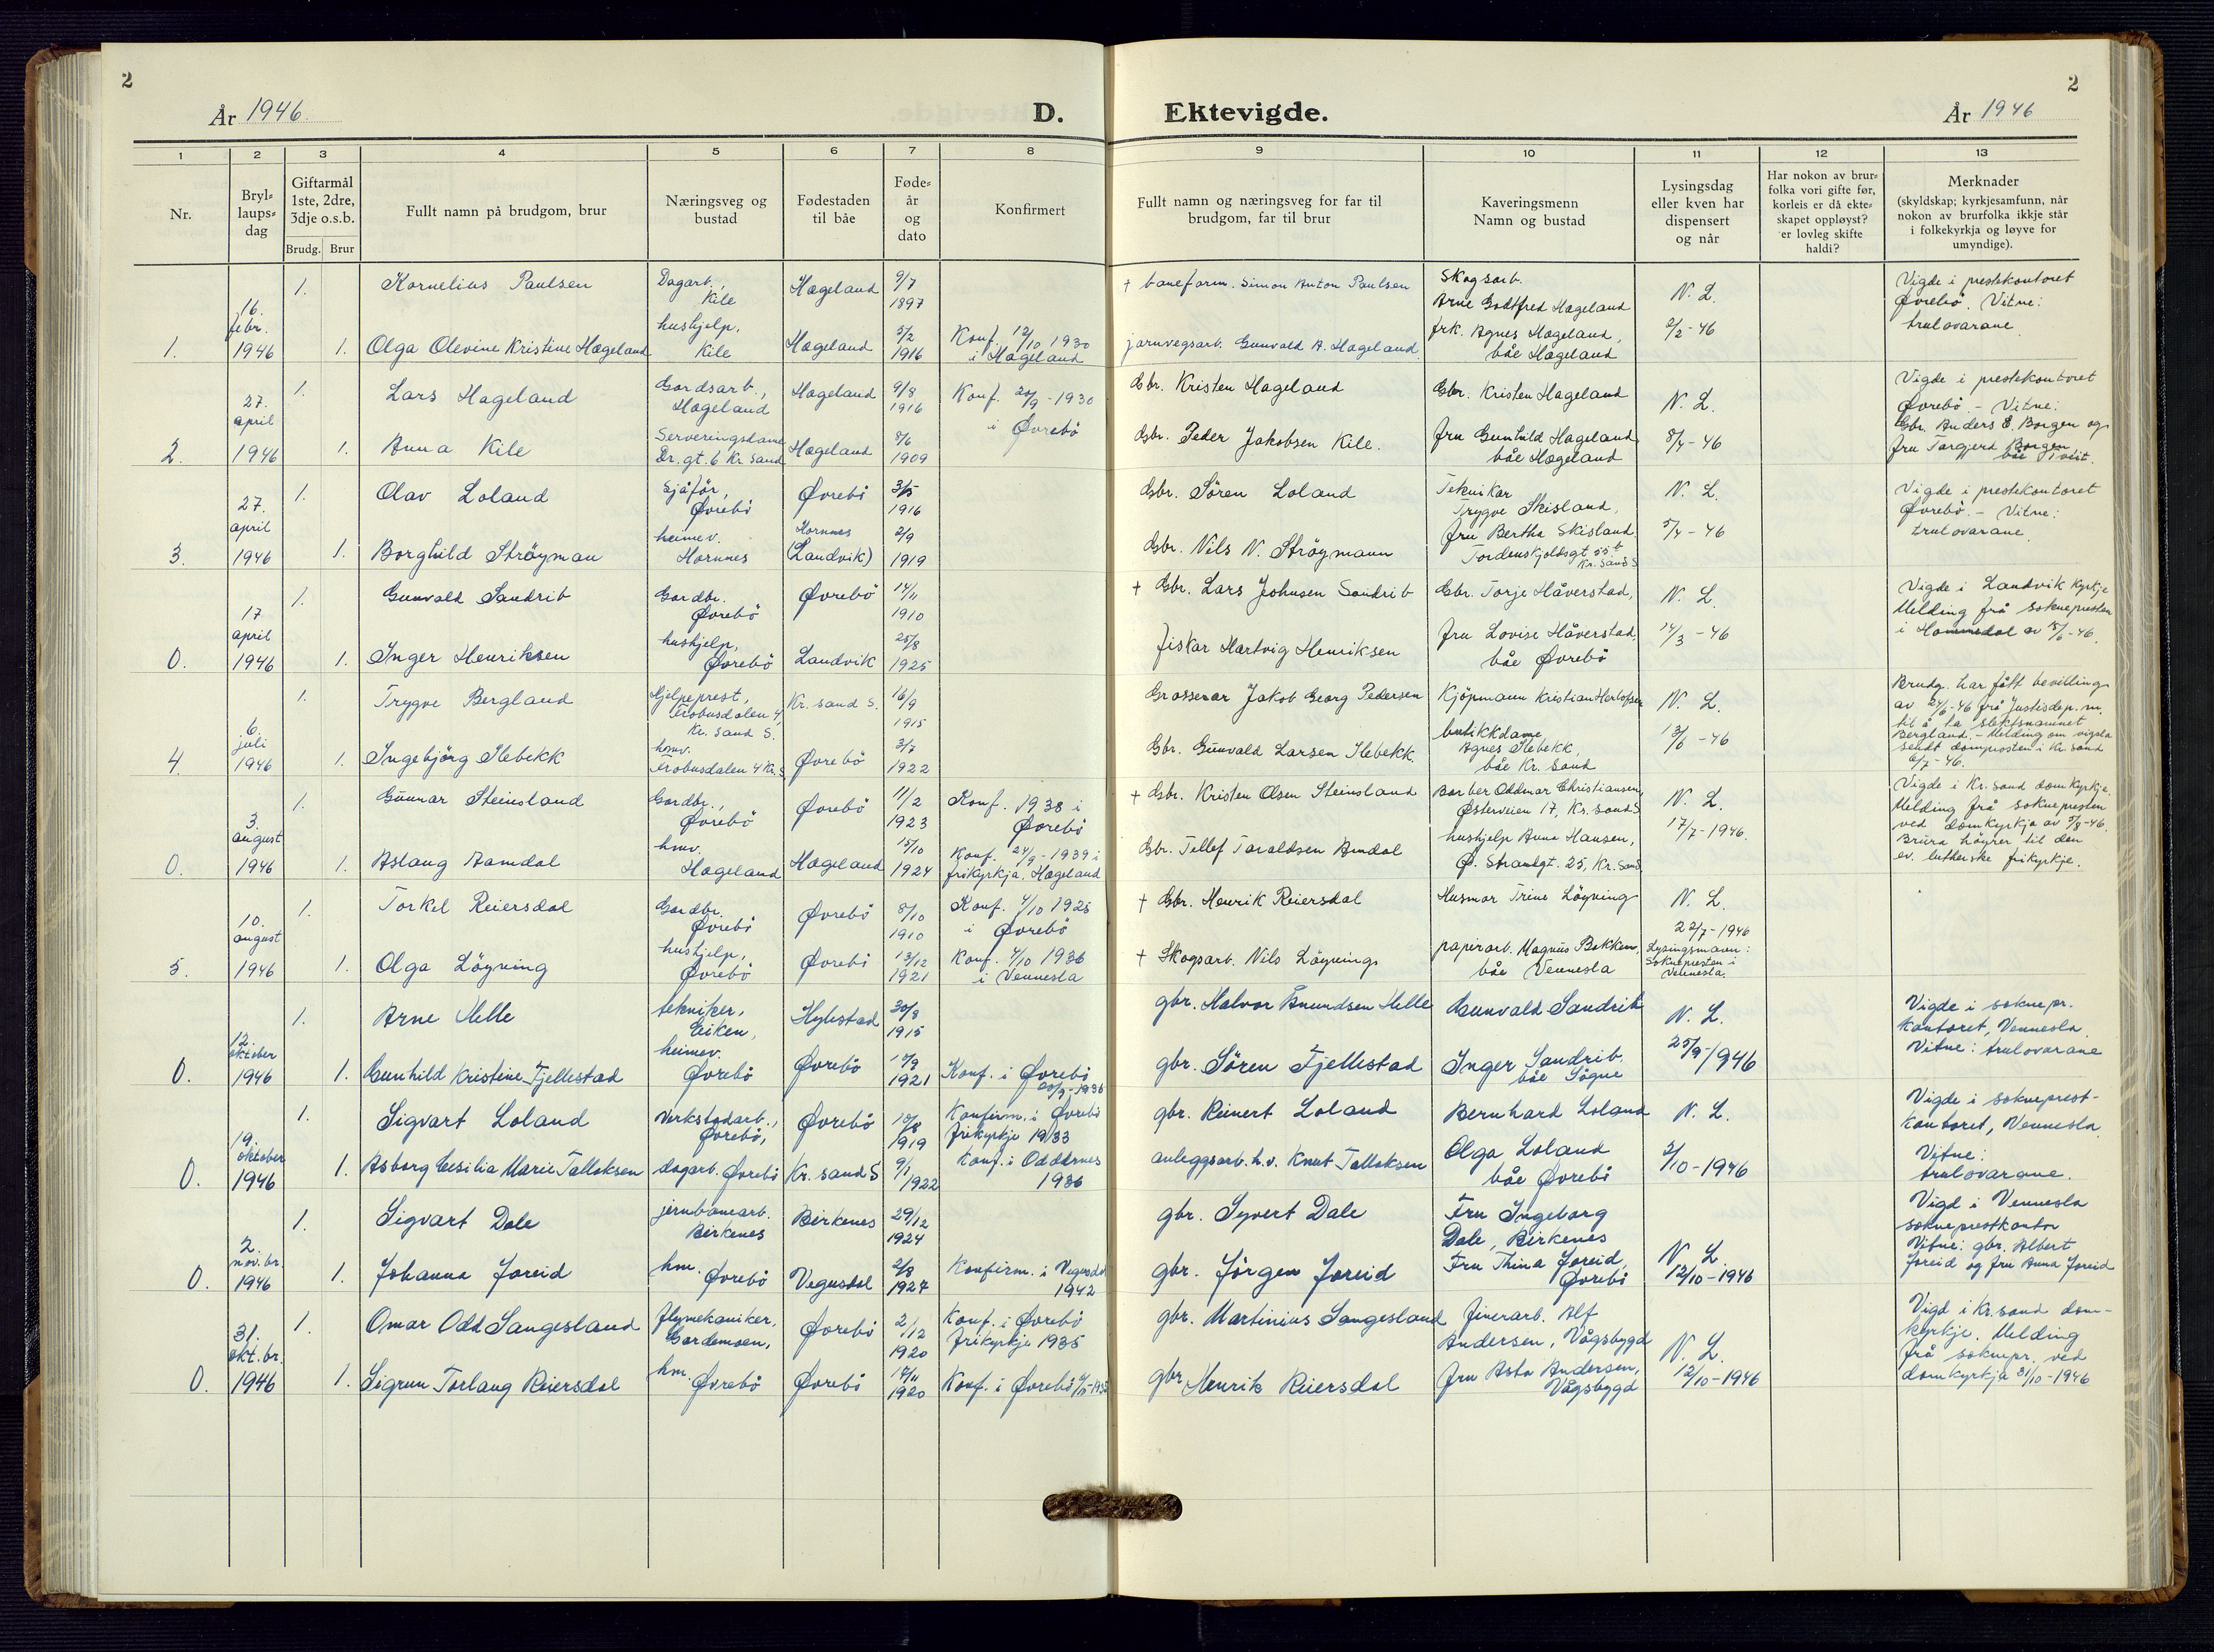 2
2
År 1946
D.
Ektevigde.
År 1946
1 2 3 4 5 6 7 8 9 10 11 12 13
Nr.
Bryl-
laups-
dag
Giftarmål
1ste, 2dre,
3dje o.s.b.
Brudg. Brur
Fullt namn på brudgom, brur
Næringsveg og
bustad
Fødestaden
til båe
Føde-
år
og
dato
Konfirmert
Fullt namn og næringsveg for far til
brudgom, far til brur
Kaveringsmenn
Namn og bustad
Lysingsdag
eller kven har
dispensert
og når
Har nokon av brur-
folka vori gifte før,
korleis er då ekte-
skapet oppløyst?
er lovleg skifte
haldi?
Merknader
(skyldskap; kyrkjesamfunn, når
nokon av brurfolka ikkje står
i folkekyrkja og løyve for
umyndige).
1.
16.
febr.
1946
1.
Kornelius Paulsen
Dagarb.,
Kile
Hægeland
9/7
1897
† baneform. Simon Anton Paulsen
Skogsarb.
Arne Godtfred Hægeland
N. L.
2/2 - 46
Vigde i prestekontoret
Øvrebö. Vitne:
trulovarane.
1.
Olga Olevine Kristine Hægeland
hushjelp,
Kile
Hægeland
5/2
1916
Konf. 12/10 1930
i Hægeland
jarnvegsarb. Gunvald A. Hageland.
frk. Agnes Hægeland,
båe Hægeland
2.
27.
april
1946
1.
Lars Hageland
Gardsarb.,
Hægeland
Hægeland
9/8
1916
Konf. 20/9 - 1930
i Øvrebö
Gbr. Kristen Hageland
Gbr. Kristen Hageland
N. L.
8/4 - 46
Vigde i prestekontoret
Øvrebö. - Vitne:
Gbr. Anders E. Borgen og
fru Torgjerd Borgen
1.
Anna Kile
Serveringsdame
Dr. gt. 6 Kr. Sand
Hægeland
8/6
1909
Gbr. Peder Jakobsen Kile.
fru Gunhild Hageland
båe Hægeland
3.
27.
april
1946
1.
Olav Loland
Sjåför,
Øvrebö
Øvrebö
3/5
1916
Gbr. Sören Loland
Teknikar
Trygve Skisland,
N. L.
5/4 - 46
Vigde i prestekontoret
Øvrebö. - Vitne:
trulovarane.
1.
Borghild Ströyman
heimev.
Hornnes
Hornnes
(Landvik)
2/9
1919
Gbr. Nils N. Ströymann
fru Bertha Skisland
Tordenskjoldsgt 55 b
Kr. Sand S
0.
17
april
1946
1.
Gunvald Sandrib
Gardbr.
Øvrebö
Øvrebö
14/11
1910
† Gbr. Lars Jeshusen Sandrib
Gbr. Torje Håverstad,
N. L.
14/3 - 46
Vigde i Landvik kyrkje
Melding frå soknepresten
i Hommedal av 15/6 - 46.
1.
Inger Henriksen
hushjelp,
Øvrebö
Landvik
25/8
1925
fiskar Hartvig Henriksen
fru Lovise Håverstad,
båe Øvrebö
4.
6.
juli
1946
1.
Trygve Bergland
Hjelpeprest,
Frobusdalen 4,
Kr. sand S.
Kr. sand S.
16/9
1915
Grosserar Jakob Georg Pedersen
Kjöpmann Kristian Herlofsen
N. L.
13/6 - 46
Brudg. har fått bevilling
av 24/6 - 46 frå Justisdep. m.
til å ta slektsnamnet
Bergland. - Melding om vigsla
sendt domprosten i Kr. sand
6/7 - 46.
1.
Ingebjörg Stebekk
hmv.
Frobusdalen 4 Kr. S
Øvrebö
3/7
1922
Gbr. Gunvald Larsen Stebekk.
butikkdame
Agnes Stebekk,
båe Kr. Sand
0.
3.
august
1946
1.
Gunnar Steinsland
Gardbr.,
Øvrebö
Øvrebö
11/2
1923
Konf. 1938 i
Øvrebö
† Gbr. Kristen Olsen Steinsland
Barber Oddmar Christiansen,
Østerveien 17, Kr. sand S
N. L.
17/7 - 1946.
Vigde i Kr. sand domkyrkje.
Melding frå soknepresten
ved domkyrkja av 5/8 - 46.
Brura höyrer til den
ev. lutherske frikyrkje.
1.
Aslaug Aamdal
hmv.
Hægeland
Hægeland
15/10
1924
Konf. 24/9 - 1939 i
frikyrkja, Hægeland
Gbr. Tellef Taraldsen Amdal
hushjelp Anna Hansen,
Ø. Strandgt. 25, Kr. Sand
5.
10.
august
1946
1.
Torkel Reiersdal
Gardbr.
Øvrebö
Øvrebö
8/10
1910
Konf. 4/10 1925
i Øvrebö
† Gbr. Henrik Reiersdal
Husmor Trine Löyning
N. L.
22/7 - 1946
Lysingsmann:
Soknepresten i
Vennesla.
1.
Olga Löyning
hushjelp,
Øvrebö
Øvrebö
13/12
1921
Konf. 4/10 1936
i Vennesla
† Skogsarb. Nils Löyning
papirarb. Magnus Bakken,
båe Vennesla
0.
12.
oktober
1946
1.
Arne Helle
tekniker,
Eiken,
Hylestad
30/8
1915
gbr. Halvor Ånundsen Helle
Gunvald Sandrib
N. L.
25/9 - 1946
Vigde i soknepr.
kontoret, Vennesla.
Vitne: trulovarane
1.
Gunhild Kristine Fjellestad
heimev.
Øvrebö
Øvrebö
15/9
1921
Konf. i Øvrebö
20/9 - 1936
gbr. Sören Fjellestad
Inger Sandrib.
båe Sögne
0.
19.
oktober
1946
1.
Sigvart Loland
Verkstadarb.,
Øvrebö,
Øvrebö
10/8
1919
Konfirm. i Øvrebö
frikyrkje 1933
gbr. Reinert Loland
Bernhard Loland
N. L.
2/10 - 1946
Vigde i soknprest-
kontoret, Vennesla
Vitne:
trulovarane.
1.
Asborg Cesilia Marie Tallaksen
dagarb. Øvrebö
Kr. sand S
9/1
1922
Konf. i Oddernes
1936
anleggsarb. h.v. Knut Tallaksen
Olga Loland
båe Øvrebö
0.
2.
nov. br.
1946
1.
Sigvart Dale
jernbanearb.
Birkenes
Birkenes
29/12
1924
gbr. Syvert Dale
Fru Ingeborg
Dale, Birkenes
N. L.
12/10 - 1946
Vigd i Vennesla
sokneprestkontor
Vitne: gbr. Albert
Joreid og fru Anna Joreid
1.
Johanna Joreid
hm.
Øvrebö
Vegusdal
2/8
1927
Konfirm. i Vegusdal
1942
gbr. Jörgen Joreid
Fru Thina Joreid,
Øvrebö
0.
31.
okt. br.
1946
1.
Omar Odd Sangesland
flymekaniker,
Gardemoen,
Øvrebö
2/12
1920
Konf. i Øvrebö
frikyrkje 1935
gbr. Martinius Sangesland
finerarb. Alf
Andersen, Vågsbygd
N. L.
12/10 - 1946
Vigd i Kr. sand dom-
kyrkje. Melding
frå soknepr. ved
domkyrkja 31/10 - 1946
1.
Sigrun Torlaug Reiersdal
hm.
Øvrebö
Øvrebö
1920
Konf. i Øvrebö
gbr. Henrik Reiersdal
fru Asta Andersen,
Vågsbygd